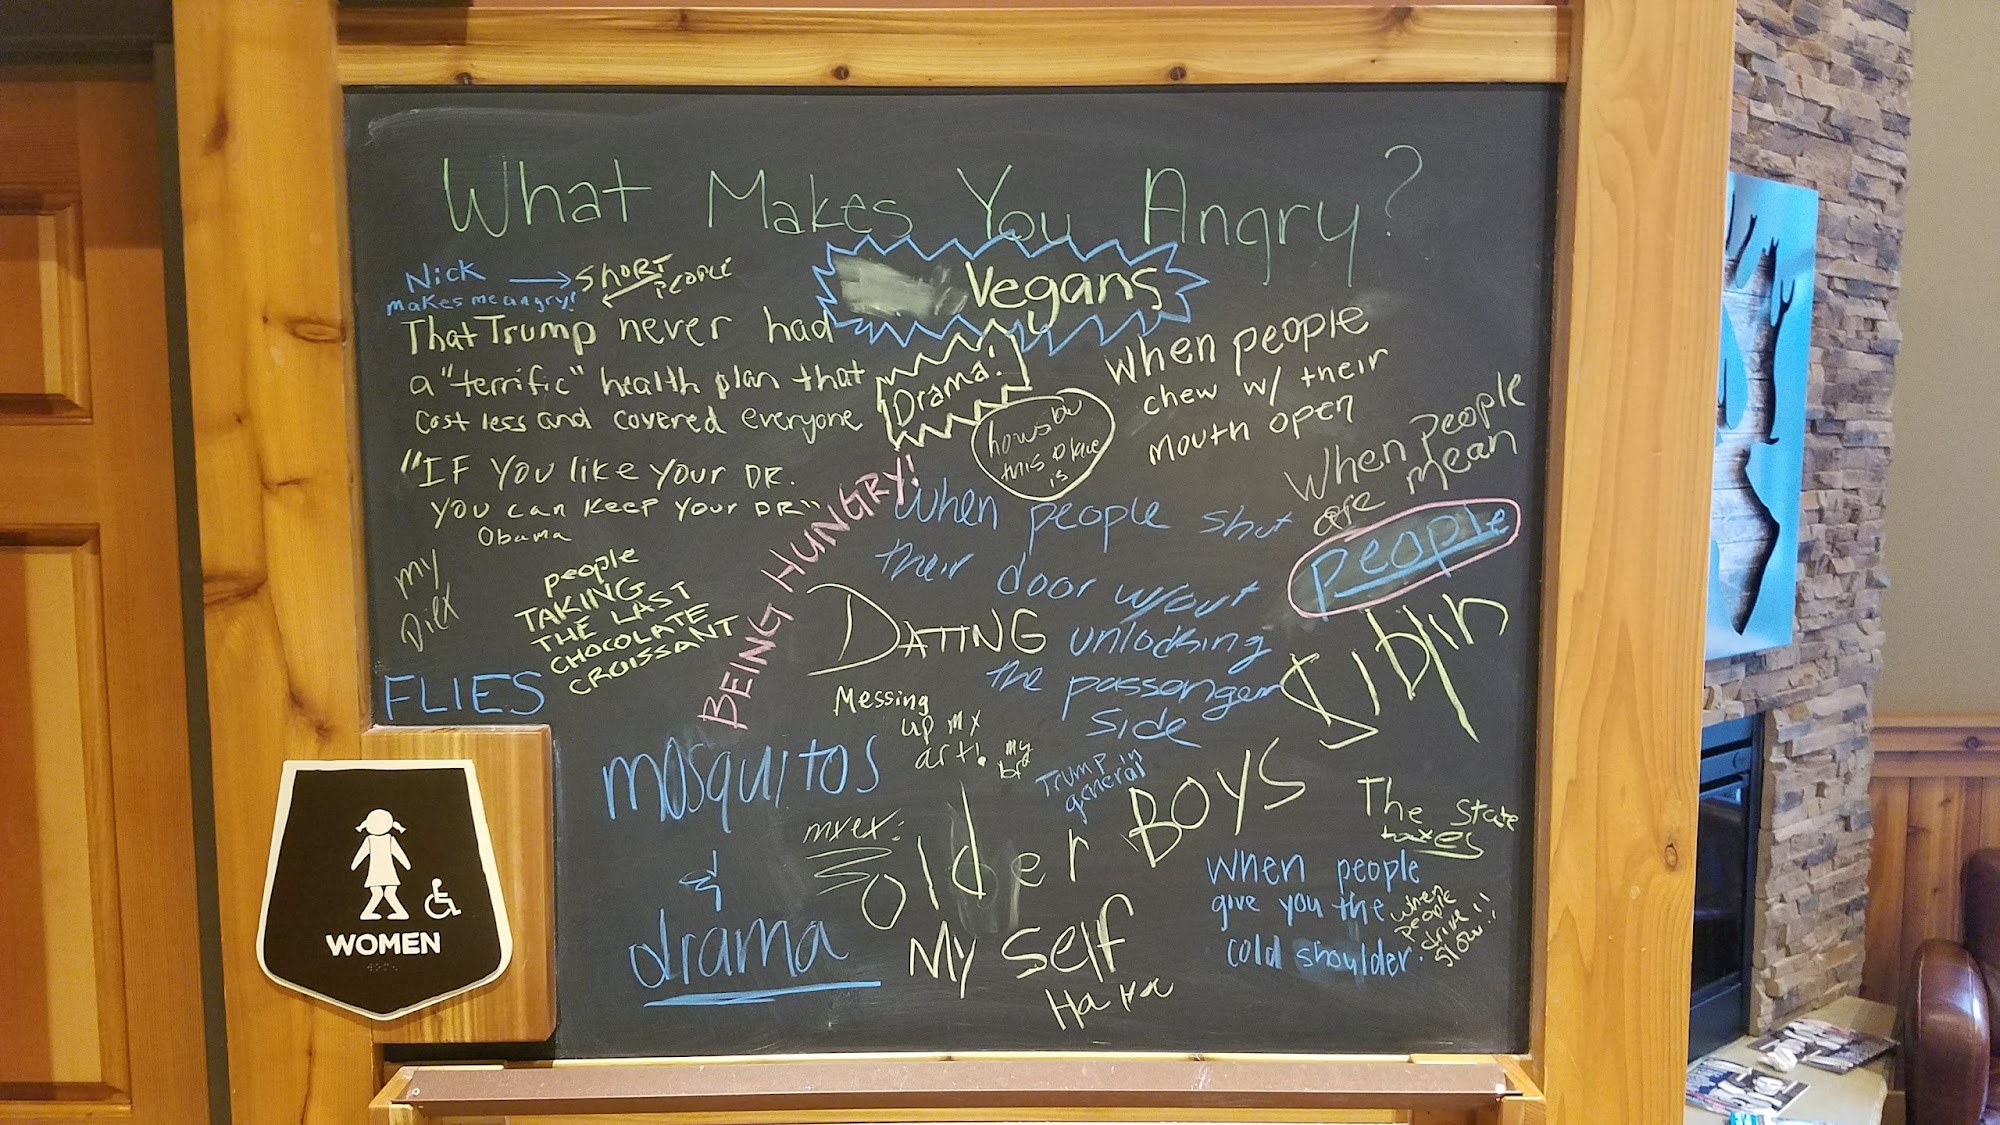 What Makes You Angry?
Nick → SHORT
PEOPLE
makes me angry!
Vegans
That Trump never had
a "terrific" health plan that
cost less and covered everyone
Drama!
hows
this place
is
When people
chew w/ their
mouth open
When people
are mean
people
"IF YOU like YOUR DR.
YOU can keep YOUR DR"
Obama
BEING HUNGRY!
When people shut
their door w/out
unlocking
the passenger
side
my
Diet
people
TAKING
THE LAST
CHOCOLATE
CROISSANT
DATING
Siblin
FLIES
Messing
up my
art!
my
bro
mosquitos
&
drama
Trump in
general
my ex:
older BOYS
The State
taxes
My self
Ha Ha
When people
give you the
cold shoulder.
when
people
drive
slow!!
WOMEN